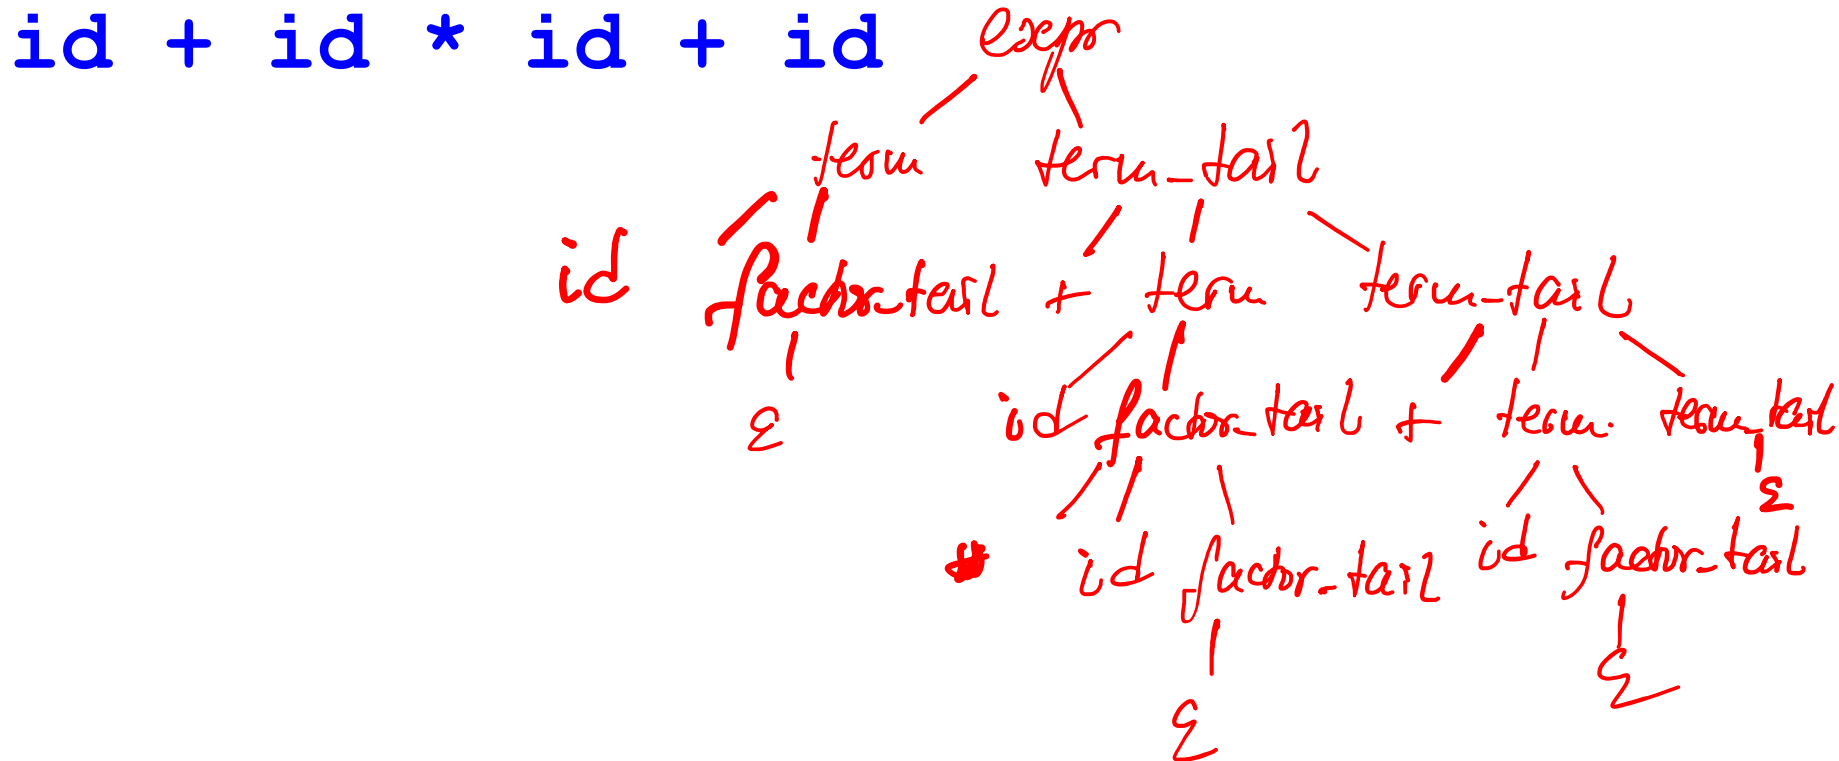 id + id * id + id
expr
term term_tail
id factor_tail + term term_tail
ε id factor_tail + term term_tail
* id factor_tail id factor_tail ε
ε ε